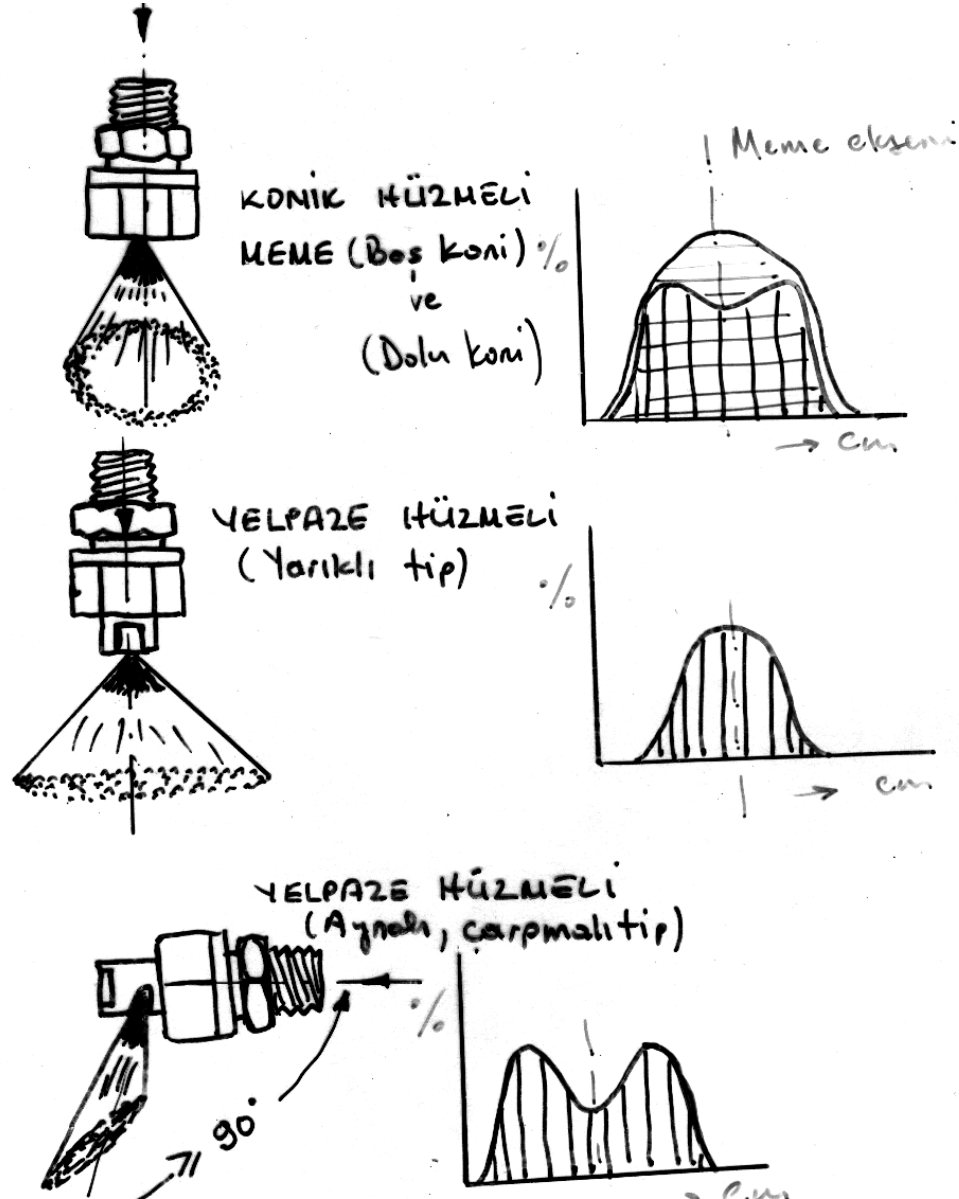 Meme ekseni
KONİK HÜZMELİ
MEME (Boş koni)
ve
(Dolu koni)
%
→ cm
YELPAZE HÜZMELİ
(Yarıklı tip)
%
→ cm
YELPAZE HÜZMELİ
(Aynalı, çarpmalı tip)
%
90°
→ cm